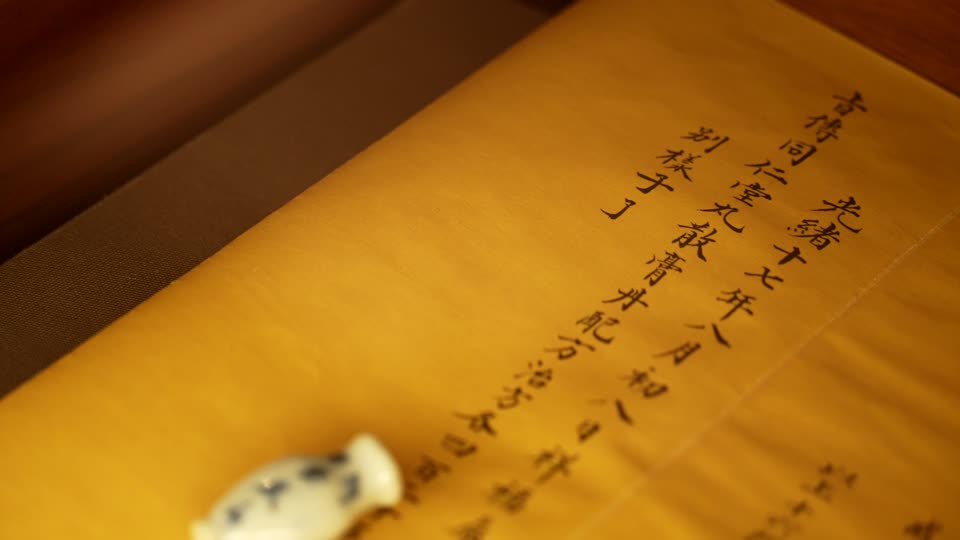 光緒十七年八月初八日
旨傳同仁堂丸散膏丹配方治方各四百
别樣子了